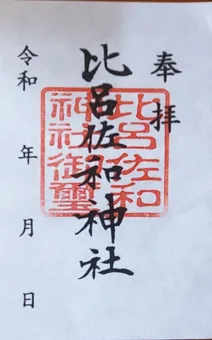 奉拝
比呂佐和
神社御璽
比呂佐和神社
令和　年　月　日